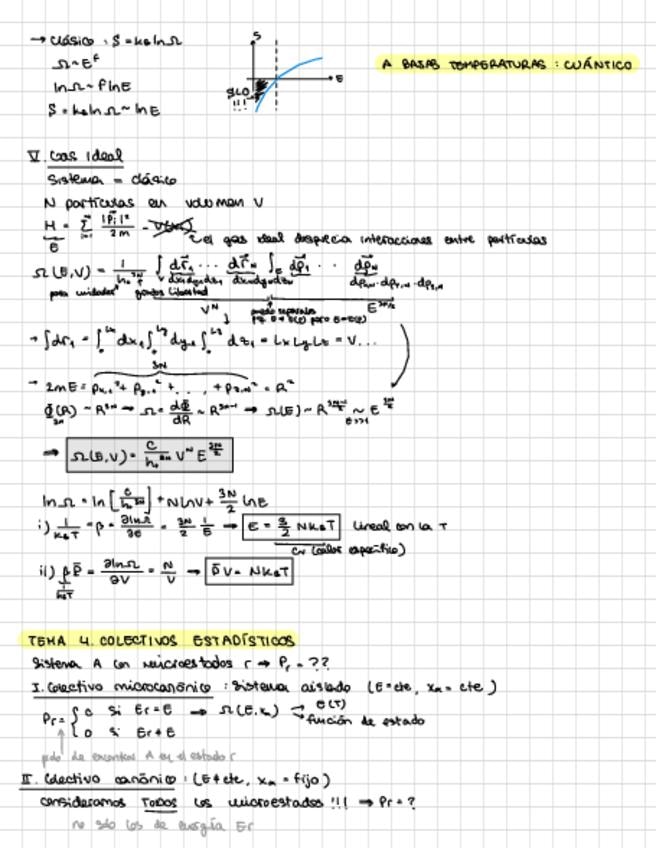 → Clásico : S = k_B ln Ω
Ω ~ E^f
ln Ω ~ f ln E
S = k_B ln Ω ~ ln E
S
E
S<0
!!!
A BAJAS TEMPERATURAS : CUÁNTICO
V. Gas Ideal
Sistema = clásico
N partículas en volumen V
H = Σ |p_i|²/2m - V(x_i)
E
el gas ideal desprecia interacciones entre partículas
Ω(E,V) = 1/h_0^3N ∫_V dr_1 ... dr_N ∫_E dp_1 ... dp_N
para unidades
V^N
E^3N/2
→ ∫dr_1 = ∫_0^Lx dx_1 ∫_0^Ly dy_1 ∫_0^Lz dz_1 = Lx Ly Lz = V...
3N
→ 2mE = p_x,1² + p_y,1² + ... + p_z,N² = R²
Φ(R) ~ R^3N → Ω = dΦ/dR ~ R^3N-1 → Ω(E) ~ R^3N-1 ~ E^3N/2
⇒ Ω(E,V) = C/h_0^3N V^N E^3N/2
ln Ω = ln [C/h_0^3N] + N ln V + 3N/2 ln E
i) 1/k_BT = β = ∂lnΩ/∂E = 3N/2 1/E → E = 3/2 N k_B T lineal con la T
Cv (calor específico)
ii) β P̄ = ∂lnΩ/∂V = N/V → P̄V = N k_B T
1/k_BT
TEMA 4. COLECTIVOS ESTADÍSTICOS
Sistema A con microestados r → P_r = ??
I. Colectivo microcanónico : Sistema aislado (E=cte, x_α = cte)
Pr = { C si Er = E → Ω(E,x_α) → S(T)
función de estado
0 si Er ≠ E
pdo de encontrar A en el estado r
II. Colectivo canónico : (E ≠ cte, x_α = fijo)
consideramos TODOS los microestados !!! → Pr = ?
no sólo los de energía Er